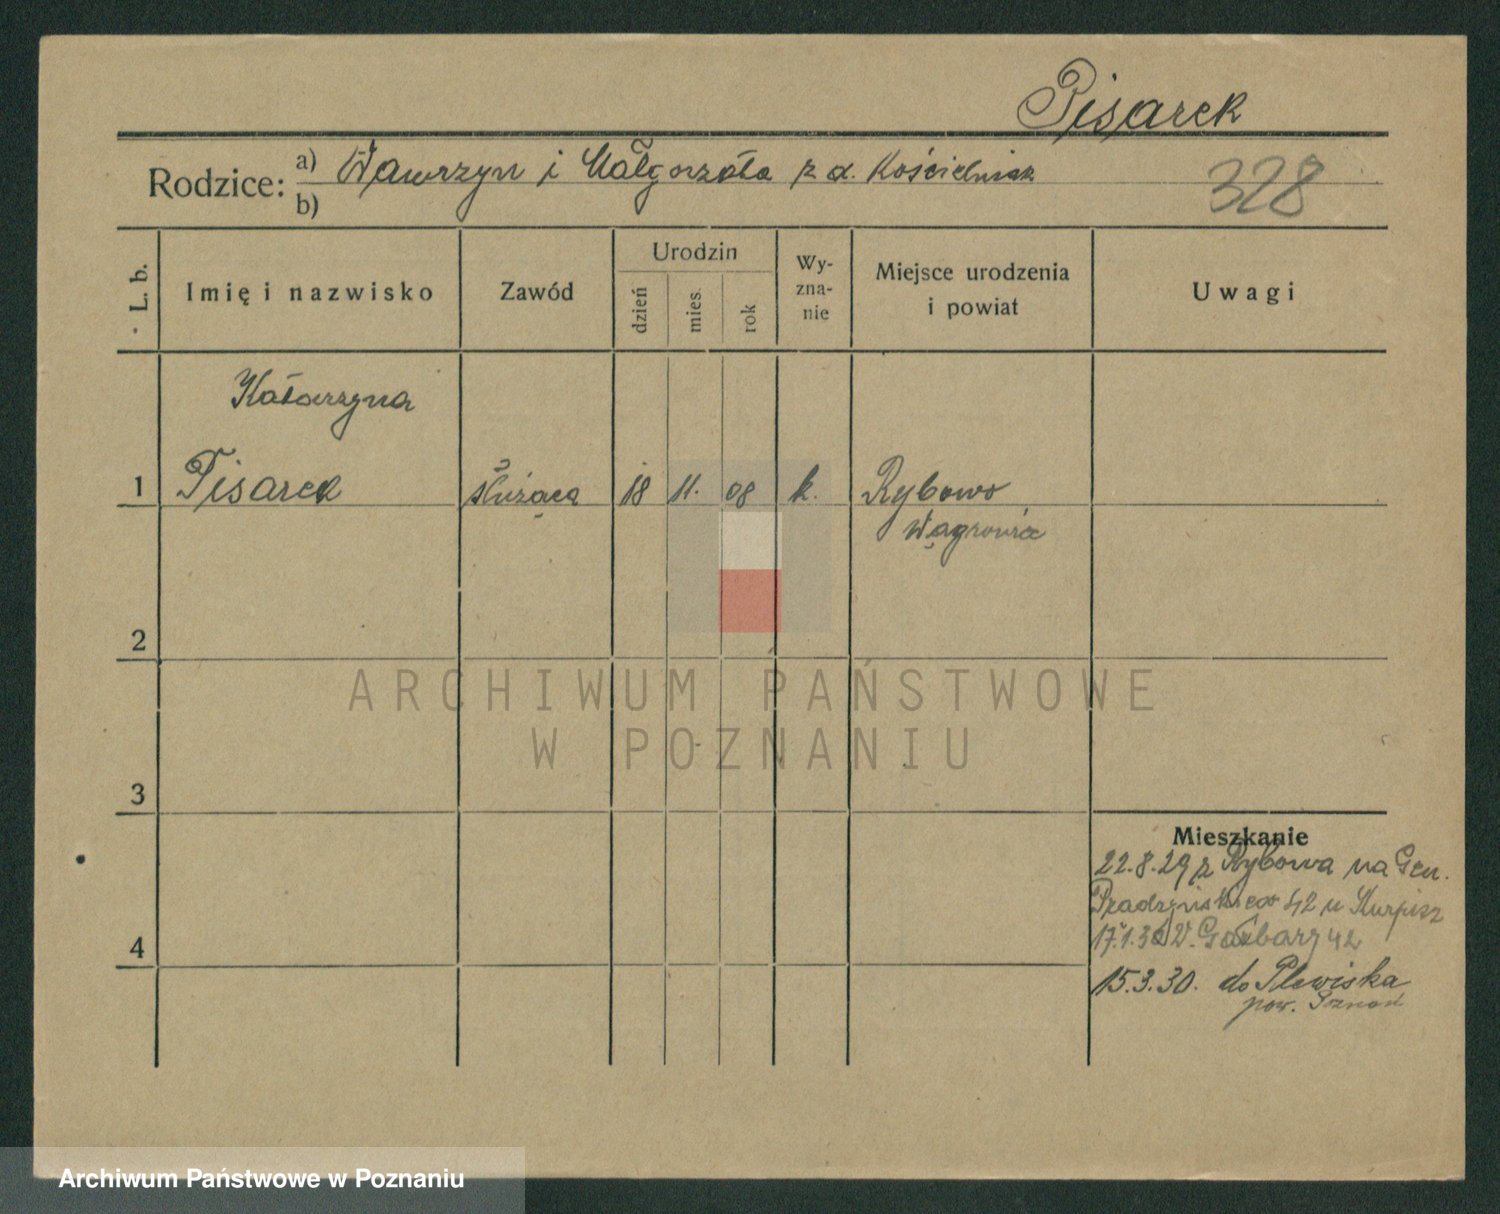 Pisarek
Rodzice: a) Wawrzyn i Małgorzata z d. Kościelniak
b)
328
L. b.
Imię i nazwisko
Zawód
Urodzin
dzień
mies.
rok
Wy-
zna-
nie
Miejsce urodzenia
i powiat
Uwagi
Katarzyna
1 Pisarek służąca 18 11. 08 k. Rybowo
Wągrowiec
2
ARCHIWUM PAŃSTWOWE
W POZNANIU
3
Mieszkanie
22.8.29 z Rybowa na Gen.
Prądzyńskiego 42 u Kurpisz
17.1.30 W. Garbary 42
4
15.3.30. do Plewiska
pow. Poznań
Archiwum Państwowe w Poznaniu